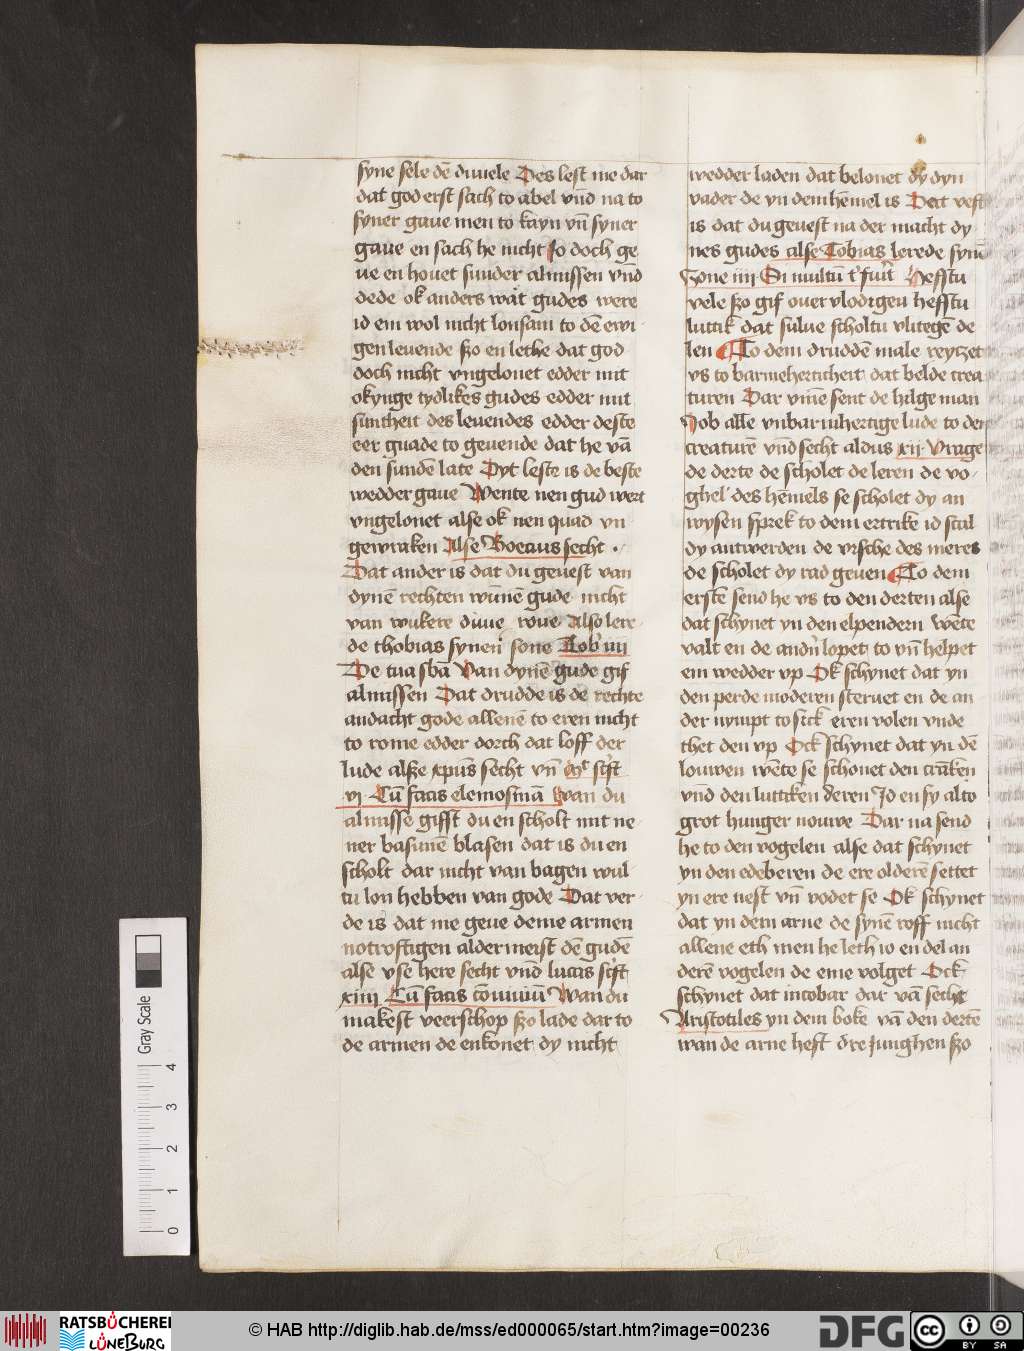 syne sele dē duuele Des lest me dar
dat god erst sach to abel vn̄d na to
syner gaue men to kayn vn̄ syner
gaue en sach he nicht Jo doch ge
ue en houet sunder almissen vnd
dede ok anders wat gudes were
id em wol nicht lonsam to dē ewi
gen leuende szo en lethe dat god
doch nicht vngelonet edder mit
okynge tydlikes gudes edder mit
suntheit des leuendes edder deste
eer gnade to geuende dat he vā
den sundē late Dyt leste is de beste
wedder gaue Wente nen gud wert
vngelonet alse ok nen quad vn
gewraken Alse Boecius secht ·
Dat ander is dat du geuest van
dynē rechten wūnē gude nicht
van wukere duue roue Also lere
de thobias synen sone Tob' iiii
De tua sbā Van dynē gude gif
almissen Dat drudde is de rechte
andacht gode allenē to eren nicht
to rome edder dorch dat loff der
lude alsze xpūs secht vn̄ mt scft
vi Cū facis elemosinā Wan du
almisse gifft du en scholt mit ne
ner basunē blasen dat is du en
scholt dar nicht van bagen wul
tu lon hebben van gode Dat ver
de is dat me geue deme armen
notroftigen aldermeist dē gudē
alse vse here secht vn̄d lucas scft
xiiii Cū facis cōuiuiū Wan du
makest veerschop szo lade dar to
de armen de enkonet dy nicht
wedder laden dat belonet dy dyn
vader de yn dem hēmel is Dat vefte
is dat du geuest na der macht dy
nes gudes alse Tobias lerede synē
Sone iiii Si multū t' fu'it Hefstu
vele szo gif ouervlodigen hefstu
luttik dat sulue scholtu vlitegē de
len To dem druddē male reytzet
vs to barmehertichēit dat belde crea
turen Dar vm̄e sent de hilge man
Job alle vnbarmhertige lude to den
creaturē vn̄d secht aldus xii Vrage
de derte de scholet de leren de vo
ghel des hēmels se scholet dy an
wysen sprek to dem ertrike id scal
dy antwerden de vische des meres
de scholet dy rad geuen To dem
erstē send he vs to den derten alse
dat schynet yn den elpendern wēte
valt en de and'n lopet to vn̄ helpet
em wedder vp Ok schynet dat yn
den perde moderen steruet en de an
der nympt to sick eren volen vnde
thet den vp Ock schynet dat yn dē
louwen wēte se schonet den crākēn
vn̄d den luttiken deren Jd en sy alto
grot hunger nouwe Dar na send
he to den vogelen alse dat schynet
yn den edeberen de ere olderē settet
yn ere nest vn̄ vodet se Ok schynet
dat yn dem arne de synē roff nicht
allene eth men he leth io en del an
derē vogelen de eme volget Ock
schynet dat incobar dar vā secht
Aristotiles yn dem boke vā den dertē
wan de arne heft dre junghen szo
Gray Scale
0 1 2 3 4
RATSBÜCHEREI LÜNEBURG
© HAB http://diglib.hab.de/mss/ed000065/start.htm?image=00236
DFG
cc BY SA